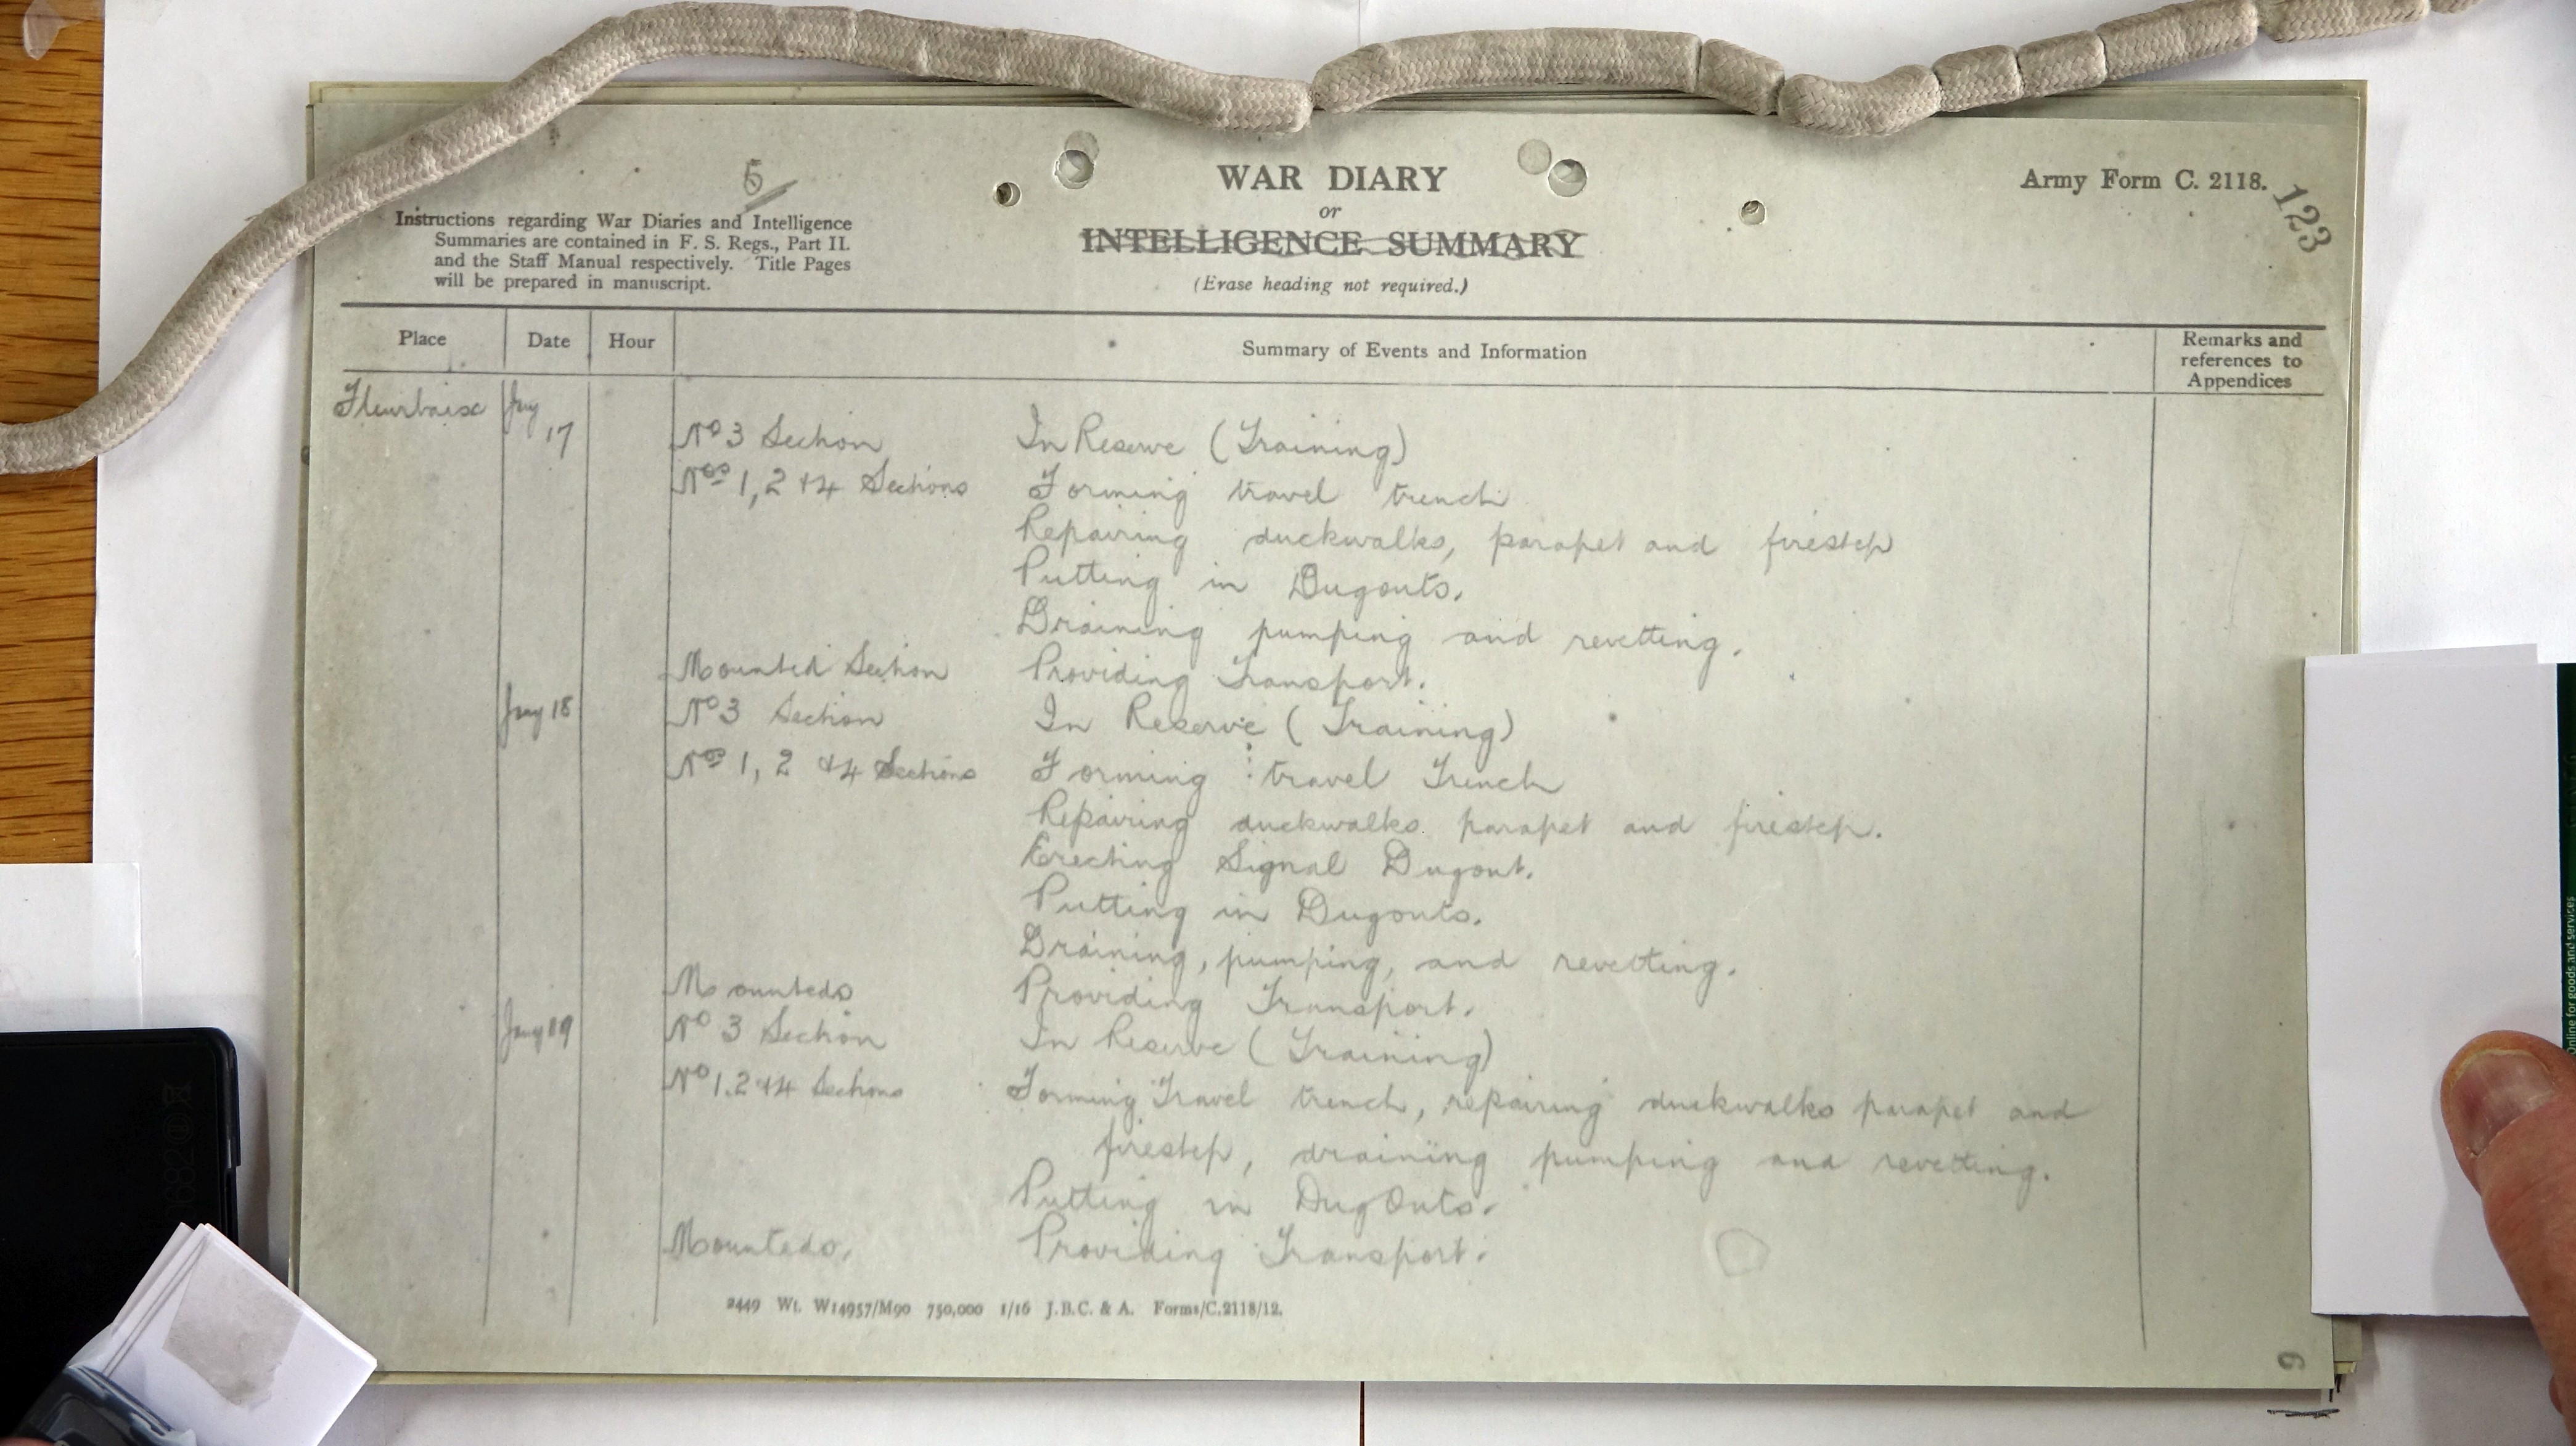 5
WAR DIARY
or
INTELLIGENCE SUMMARY
(Erase heading not required.)
Army Form C. 2118.
123
Instructions regarding War Diaries and Intelligence
Summaries are contained in F. S. Regs., Part II.
and the Staff Manual respectively. Title Pages
will be prepared in manuscript.
Place Date Hour Summary of Events and Information Remarks and
references to
Appendices
Fleurbaix Jny
17 No 3 Section In Reserve (Training)
Nos 1, 2 & 4 Sections Forming travel trench
Repairing duckwalks, parapet and firestep
Putting in Dugouts.
Draining pumping and revetting.
Mounted Section Providing Transport.
Jny 18 No 3 Section In Reserve (Training)
Nos 1, 2 & 4 Sections Forming travel Trench
Repairing duckwalks parapet and firestep.
Erecting Signal Dugout.
Putting in Dugouts.
Draining, pumping, and revetting.
Mounteds Providing Transport.
Jny 19 No 3 Section In Reserve (Training)
No 1.2 & 4 Sections Forming Travel trench, repairing duckwalks parapet and
firestep, draining pumping and revetting.
Putting in DugOuts.
Mounteds. Providing Transport.
2449 Wt. W14957/M90 750,000 1/16 J.B.C. & A. Forms/C.2118/12.
Online for goods and services